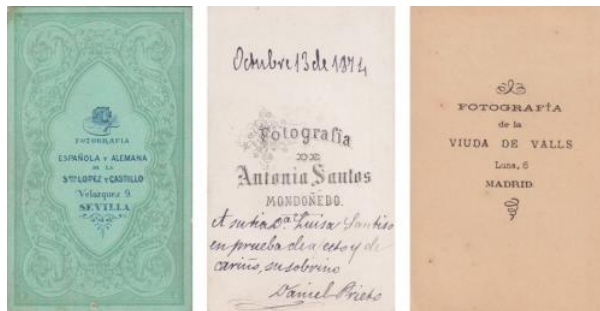 FOTOGRAFIA
ESPAÑOLA Y ALEMANA
DE LA
LOPEZ Y CASTILLO
Velazquez 9.
SEVILLA
Octubre 13 de 1874
Fotografia
DE
Antonia Santos
MONDOÑEDO.
A su tia Dª Luisa Santiso
en prueba de afecto y de
cariño, su sobrino
Daniel Prieto
FOTOGRAFÍA
de la
VIUDA DE VALLS
Luna, 6
MADRID